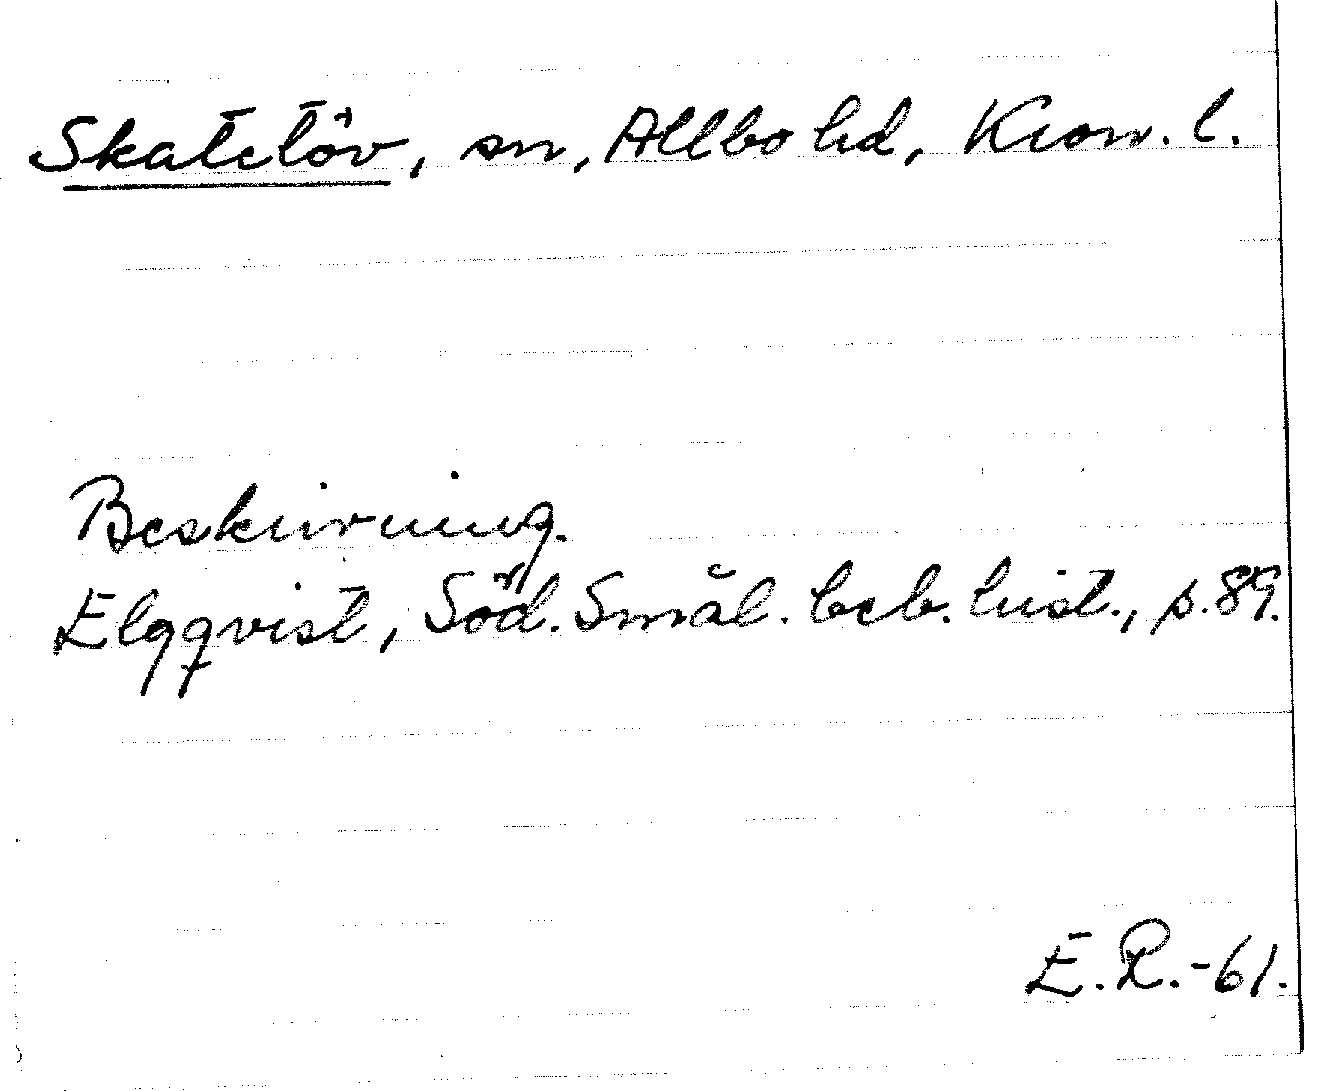 Skatelöv, sn, Allbo hd, Kron. l.
Beskrivning.
Elgqvist, Söd. Smål. beb. hist., s. 89.
E. R. -61.